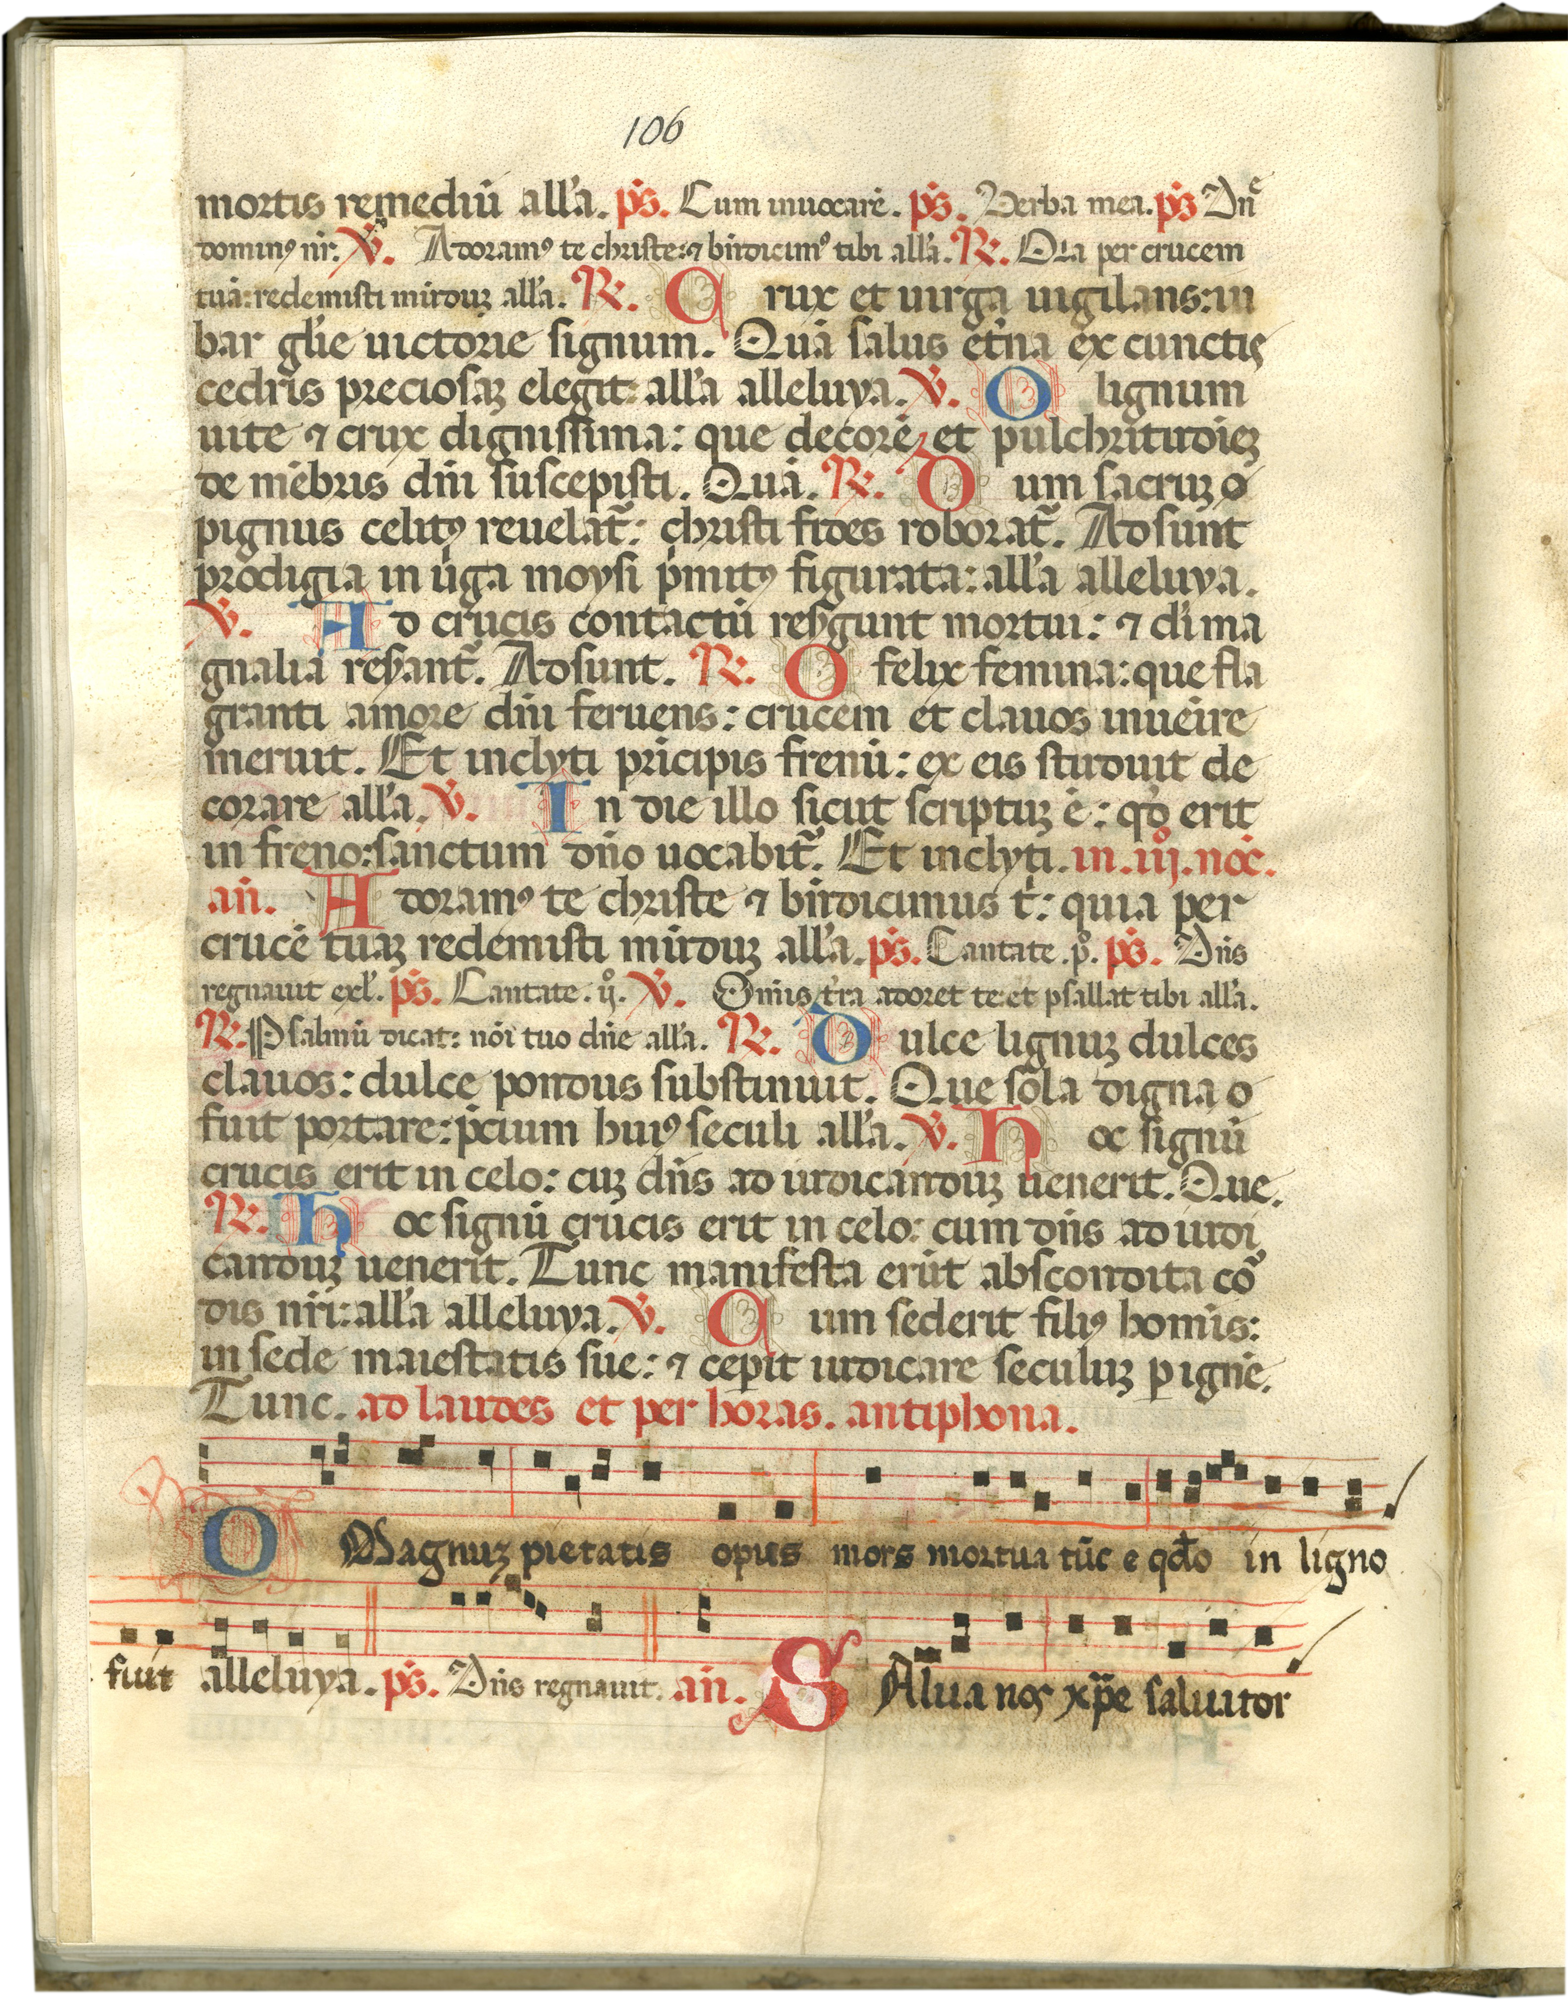 106
mortis remediū all'a. p̄s. Cum inuocarē. p̄s. Verba mea. p̄s Dn̄e
dominꝰ nr̄. V̄. Adoramꝰ te christe: ⁊ b̄ndicimꝰ tibi all'a. R. Q̄ia per crucem
tuā: redemisti mūduꝫ all'a. R. C rux et uirga uigilans: iu
bar gl'ie uictorie signum. Quā salus et̄na ex cunctis
cedris preciosaꝫ elegit: all'a alleluya. V̄. O lignum
uite ⁊ crux dignissima: que decorē et pulchritudieꝫ
de mēbris dn̄i suscepisti. Quā. R. D um sacruꝫ o
pignus celitꝰ reuelat̄: christi fides roborat̄. Adsunt
prodigia in ūga moysi p̄mitꝰ figurata: all'a alleluya.
V̄. A d crucis contactū resŷgunt mortui: ⁊ di ma
gnalia reserant̄. Adsunt. R. O felix femina: que fla
granti amore dn̄i feruens: crucem et clauos inuēire
meruit. Et inclyti prīcipis frenū: ex eis studuit de
corare all'a. V̄. I n die illo sicut scriptuꝫ ē: qd̄ erit
in freno: sanctum dn̄o uocabit̄. Et inclyti. in. iijº. noc̄.
an̄. A doramꝰ te christe ⁊ b̄ndicimus t̄: quia per
crucē tuaꝫ redemisti mūduꝫ all'a. p̄s. Cantate .pº. p̄s. Dn̄s
regnauit exl'. p̄s. Cantate .ijº. V̄. Om̄is t̄ra adoret te: et psallat tibi all'a.
R. Psalmū dicat: nōi tuo dn̄e all'a. R. D ulce lignuꝫ dulces
clauos: dulce pondus substinuit. Que sola digna
fuit portare: p̄cium huiꝰ seculi all'a. V̄. H oc signū
crucis erit in celo: cuꝫ dn̄s ad iudicanduꝫ uenerit. Que.
R. H oc signū crucis erit in celo: cum dn̄s ad iudi
canduꝫ uenerit. Tunc manifesta erūt abscondita cor̄
dis nr̄i: all'a alleluya. V̄. C um sederit filiꝰ homīs:
in sede maiestatis sue: ⁊ ceperit iudicare seculuꝫ ꝑ ignē.
Tunc. ad laudes et per horas. antiphona.
O Magnuꝫ pietatis opus mors mortua tūc e qd̄o in ligno
fuit alleluya. p̄s. Dn̄s regnauit. an̄. S Alua nos xp̄e saluator